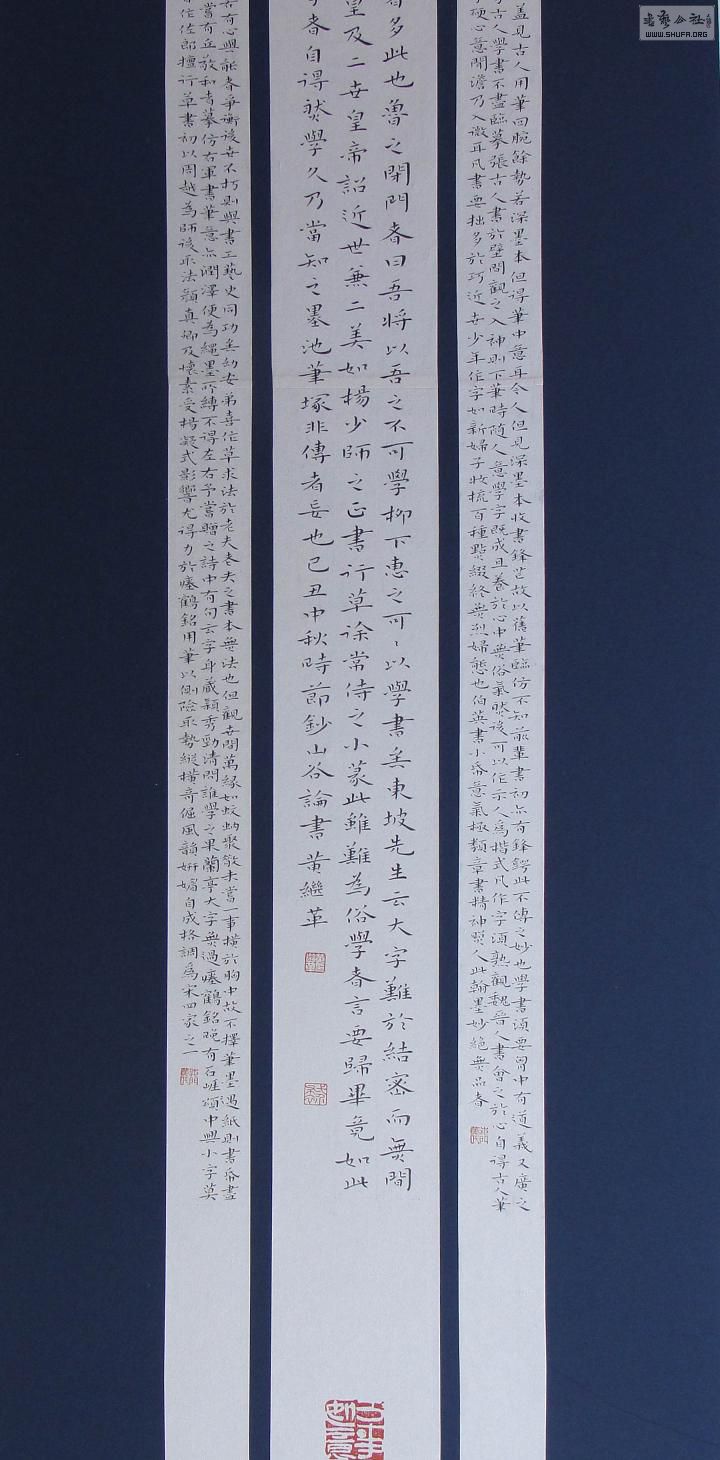 蓋見古人用筆回腕餘勢若深墨本但得筆中意耳令人但見深墨本收書鋒芒故以舊筆臨仿不知前輩書初亦有鋒鍔此不傳之妙也學書須要胷中有道義又廣之
古人學書不盡臨摹張古人書於壁間觀之入神則下筆時隨人意學字既成且養於心中無俗氣然後可以作示人為楷式凡作字須熟觀魏晉人書會之於心自得古人筆
硬心意閒澹乃入微耳凡書要拙多於巧近世少年作字如新婦子妝梳百種點綴終無烈婦態也伯英書小帋意氣極類章書精神照人此翰墨妙絕無品者
者多此也魯之閉門者曰吾將以吾之不可學柳下惠之可〻以學書矣東坡先生云大字難於結密而無間
皇及二世皇帝詔近世兼二美如楊少師之正書行草徐常侍之小篆此雖難為俗學者言要歸畢竟如此
者自得然學久乃當知之墨池筆塚非傳者妄也己丑中秋時節鈔山谷論書黃繼革
有心與能者爭衡後世不朽則與書工藝史同功矣幼安弟喜作草求法於老夫老夫之書本無法也但觀世間萬緣如蚊蚋聚散未嘗一事橫於胸中故不擇筆墨遇紙則書帋盡
嘗有丘敬和者摹仿右軍書筆意亦潤澤便為繩墨所縛不得左右予嘗贈之詩中有句云字身藏穎秀勁清問誰學之果蘭亭大字無過瘞鶴銘晚有石崖頌中興小字莫
作佐郎擅行草書初以周越為師後取法顏真卿及懷素受楊凝式影響尤得力於瘞鶴銘用筆以側險取勢縱橫奇倔風韻妍媚自成格調為宋四家之一
WWW.SHUFA.ORG